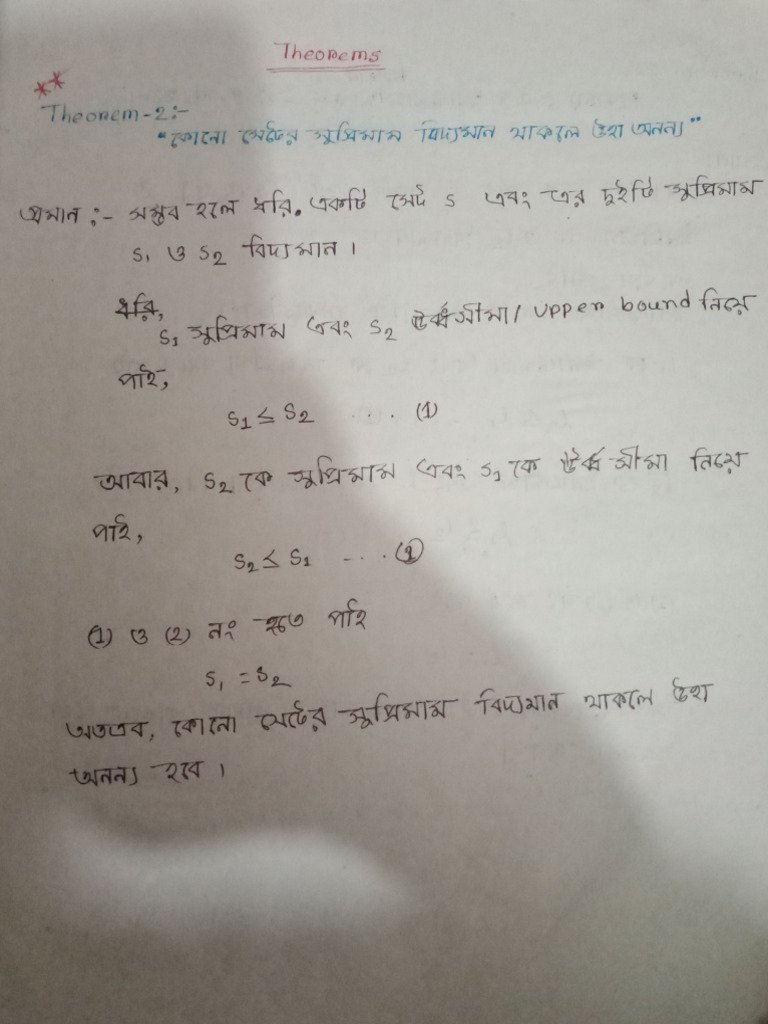 Theorems
**
Theorem-2:-
"কোনো সেটের সুপ্রিমাম বিদ্যমান থাকলে উহা অনন্য"
প্রমান :- সম্ভব হলে ধরি. একটি সেট S এবং এর দুইটি সুপ্রিমাম
S₁ ও S₂ বিদ্যমান ।
ধরি,
S₁ সুপ্রিমাম এবং S₂ উর্ধ্বসীমা/ upper bound নিয়ে
পাই,
S₁ ≤ S₂ ... (1)
আবার, S₂ কে সুপ্রিমাম এবং S₁ কে উর্ধ্ব সীমা নিয়ে
পাই,
S₂ ≤ S₁ ... (2)
(1) ও (2) নং হতে পাই
S₁ = S₂
অতএব, কোনো সেটের সুপ্রিমাম বিদ্যমান থাকলে উহা
অনন্য হবে ।